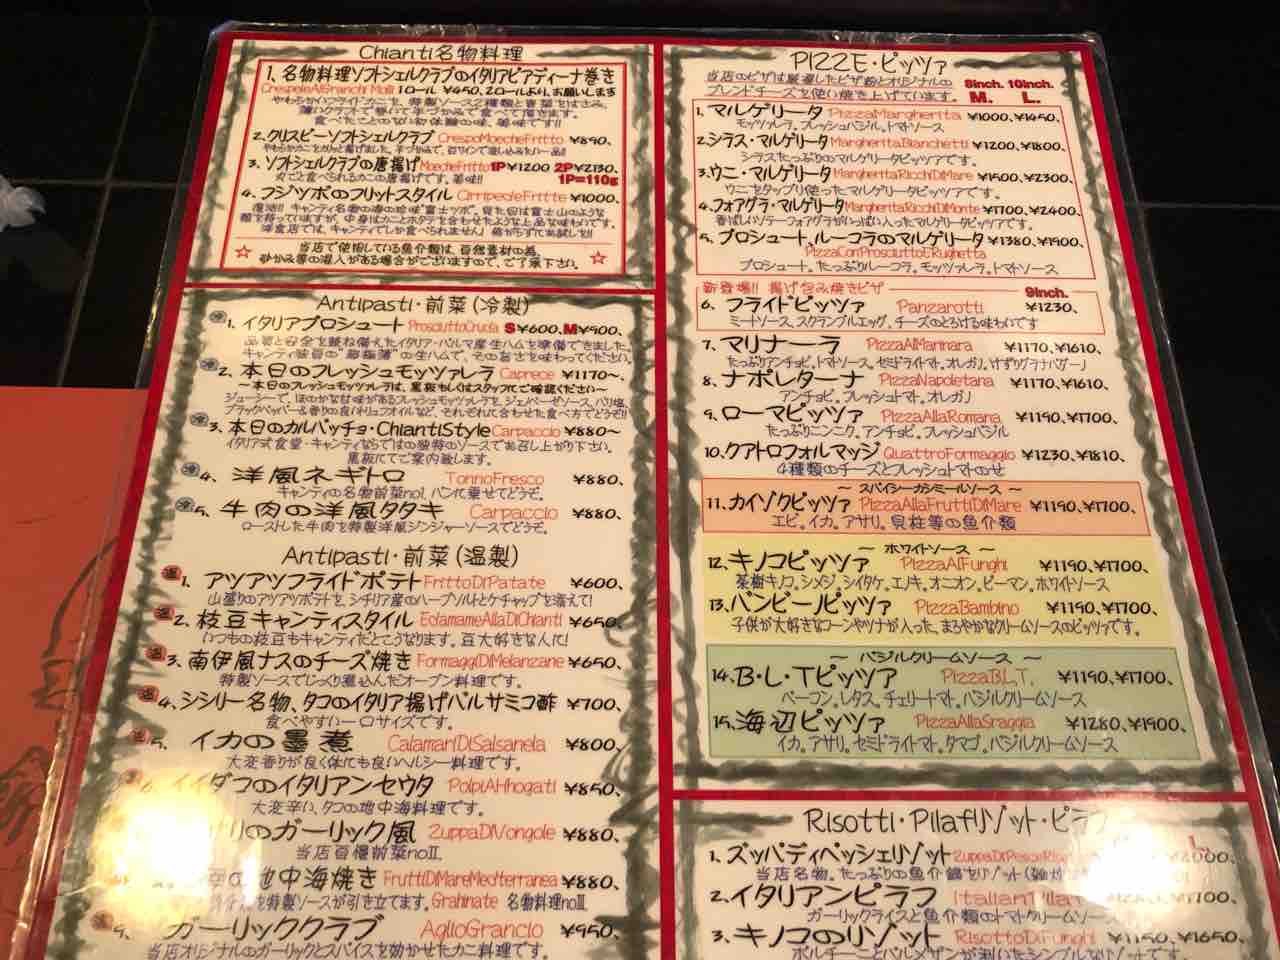 Chianti名物料理
1、名物料理ソフトシェルクラブのイタリアピアディーナ巻き
1ロール ¥450、2ロールより、お願いします
やわらかいフライドカニを、特製ソース2種類と香菜をはさみ、
2.クリスピーソフトシェルクラブ CrespoMoecheFritto ¥890、
3、ソフトシェルクラブの唐揚げ MoecheFritto 1P¥1200 2P¥2130、
丸ごと食べられるカニの唐揚げです。美味!! 1P=110g
4、フジツボのフリットスタイル CirripedeFritte ¥1000、
当店で使用している魚介類は、自然素材の為、
砂かみ等の混入がある場合がございますので、ご了承下さい。
Antipasti・前菜(冷製)
1、イタリアプロシュート ProsciuttoCrudo S¥600、M¥900、
品質と安全を兼ね備えたイタリア・パルマ産生ハムを準備できました。
2、本日のフレッシュモッツァレラ Caprece ¥1170〜、
〜本日のフレッシュモッツァレラは、黒板もしくはスタッフにてご確認ください〜
3、本日のカルパッチョ・ChiantiStyle Carpaccio ¥880〜
イタリア式食堂・キャンティならではの独特のソースでお召し上がり下さい。
黒板にてご案内致します。
4、洋風ネギトロ TonnoFresco ¥880、
キャンティの名物前菜no1、パンに乗せてどうぞ。
5、牛肉の洋風タタキ Carpaccio ¥880、
ローストした牛肉を特製洋風ジンジャーソースでどうぞ。
Antipasti・前菜(温製)
1、アツアツフライドポテト FrittoDiPatate ¥600、
山盛りのアツアツポテトを、シチリア産のハーブソルトとケチャップを添えて!
2、枝豆キャンティスタイル EdamameAllaDiChianti ¥650、
いつもの枝豆もキャンティだとこうなります。豆大好きな人に!
3、南伊風ナスのチーズ焼き FormaggiDiMelanzane ¥650、
特製ソースでじっくり煮込んだオーブン料理です。
4、シシリー名物、タコのイタリア揚げバルサミコ酢 ¥700、
食べやすい一口サイズです。
5、イカの墨煮 CalamariDiSalsanela ¥800、
大変香りが良く体にも良いヘルシー料理です。
イイダコのイタリアンセウタ PolpiAHhogati ¥850、
大変辛い、タコの地中海料理です。
リのガーリック風 ZuppaDiVongole ¥880、
当店自慢前菜noII.
地中海焼き FruttiDiMareMediterranea ¥880、
を特製ソースが引き立てます。Gratinate 名物料理noIII
9、ガーリッククラブ AglioGranclo ¥950、
当店オリジナルのガーリックとスパイスを効かせたカニ料理です。
PIZZE・ピッツァ
当店のピザは厳選したピザ粉とオリジナルの
ブレンドチーズを使い焼き上げています。
8inch. 10inch.
M. L.
1、マルゲリータ PizzaMargherita ¥1000、¥1450、
モッツァレラ。フレッシュバジル。トマトソース
2、シラス・マルゲリータ MargheritaBianchetti ¥1200、¥1800、
シラスたっぷりのマルゲリータピッツァです。
3、ウニ・マルゲリータ MargheritaRicchiDiMare ¥1500、¥2300、
ウニをタップリ使ったマルゲリータピッツァです。
4、フォアグラ・マルゲリータ MargheritaRicchiDiMonte ¥1700、¥2400、
香ばしいソテーフォアグラがいっぱい入ったマルゲリータピッツァです。
5、プロシュート、ルーコラのマルゲリータ ¥1380、¥1900、
PizzaConProsciuttoERughetta
プロシュート。たっぷりルーコラ。モッツァレラ。トマトソース
新登場!! 揚げ包み焼きピザ 9inch.
6、フライドピッツァ Panzarotti ¥1230、
ミートソース、スクランブルエッグ、チーズのとろける味わいです
7、マリナーラ PizzaAlMarinara ¥1170、¥1610、
たっぷりアンチョビ、トマトソース、セミドライトマト、オレガノ、けずりグラナパダーノ
8、ナポレターナ PizzaNapoletana ¥1170、¥1610、
アンチョビ、フレッシュトマト、オレガノ
9、ローマピッツァ PizzaAllaRomana ¥1190、¥1700、
たっぷりニンニク。アンチョビ。フレッシュバジル
10、クアトロフォルマッジ QuattroFormaggio ¥1230、¥1810、
4種類のチーズとフレッシュトマトのせ
〜 スパイシーガシミールソース 〜
11、カイゾクピッツァ PizzaAllaFruttiDiMare ¥1190、¥1700、
エビ。イカ。アサリ。貝柱等の魚介類
〜 ホワイトソース 〜
12、キノコピッツァ PizzaAlFunghi ¥1190、¥1700、
茶樹キノコ。シメジ。シイタケ。エノキ。オニオン。ピーマン。ホワイトソース
13、バンビーノピッツァ PizzaBambino ¥1190、¥1700、
子供が大好きなコーンやツナが入った、まろやかなクリームソースのピッツァです。
〜 バジルクリームソース 〜
14、B・L・Tピッツァ PizzaB.L.T. ¥1190、¥1700、
ベーコン。レタス。チェリートマト。バジルクリームソース
15、海辺ピッツァ PizzaAllaSraggia ¥1280、¥1900、
イカ。アサリ。セミドライトマト。タマゴ。バジルクリームソース
Risotti・Pilafリゾット・ピラフ
1、ズッパディペッシェリゾット
当店名物。たっぷりの魚介鍋をリゾット
2、イタリアンピラフ
ガーリックライスと魚介類のトマトクリームソース
3、キノコのリゾット RisottoDiFunghi ¥1150、¥1650、